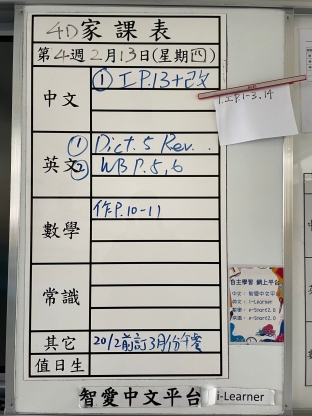 4D家課表
第4週2月13日(星期四)
中文
① 工P.13+改
1.工P.1-3, 14
英文
① Dict.5 Rev.
② WB P.5,6
數學
作P.10-11
常識
其它
20/2前訂3月份午餐
值日生
自主學習 網上平台
中文：智愛中文平台
英文：i-Learner
數學：e-Smart2.0
常識：e-Smart2.0
智愛中文平台
i-Learner